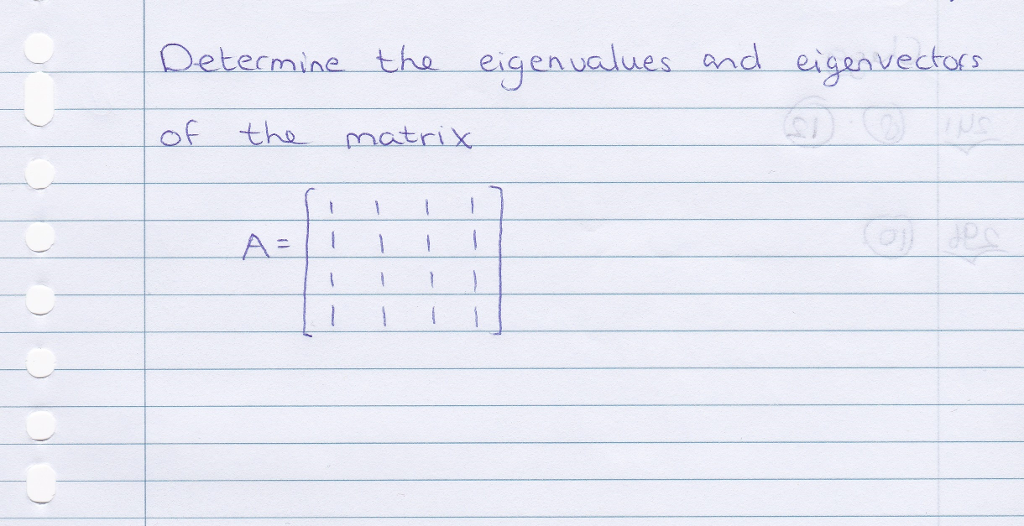 Determine the eigenvalues and eigenvectors
of the matrix
A = [ 1 1 1 1
1 1 1 1
1 1 1 1
1 1 1 1 ]